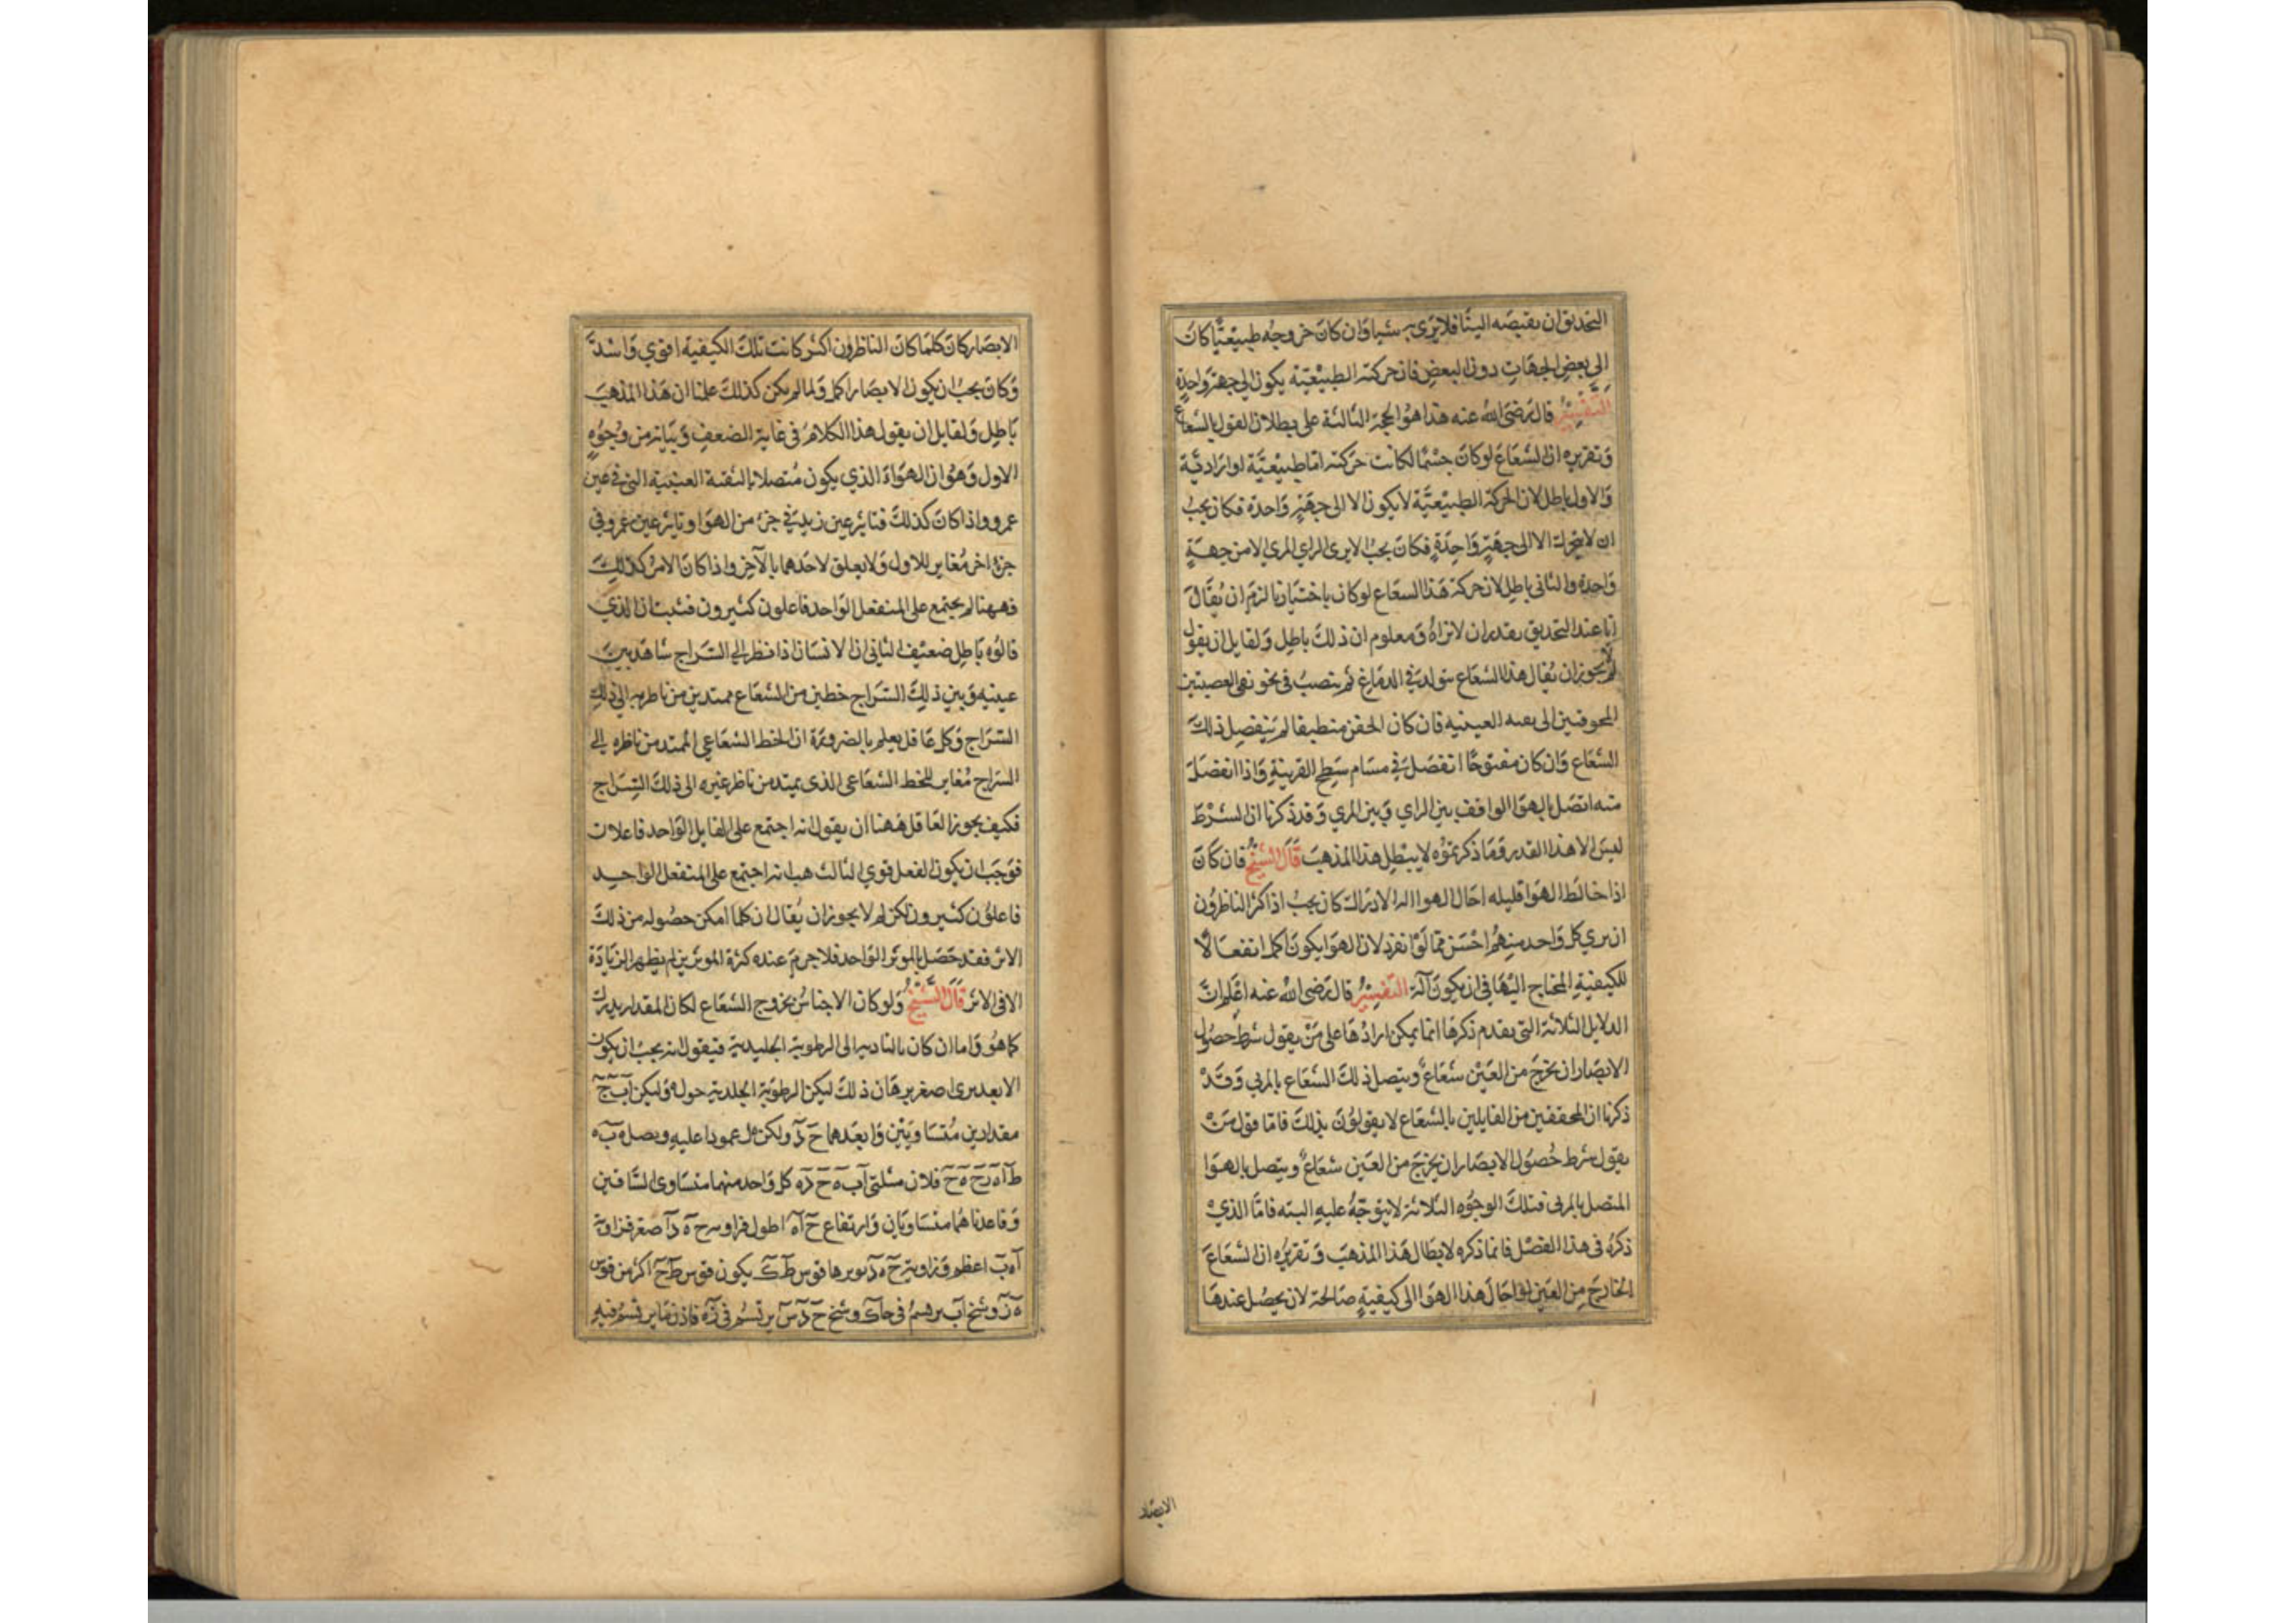 التحديق ان نقبضه الينا فلا يرى به شيا وان كان خروجه طبيعيا كان
الى بعض الجهات دون البعض فان حركته الطبيعية يكون الى جهة واحدة
التفسير قال رضى الله عنه هذا هو الحجة الثالثة على بطلان القول بالشعاع
وتقريره ان الشعاع لو كان جسما لكانت حركته اما طبيعية او ارادية
والاول باطل لان الحركة الطبيعية لا يكون الا الى جهة واحدة فكان يجب
ان لا يتحرك الا الى جهة واحدة فكان يجب الا يرى الراي المرى الا من جهة
واحدة والثانى باطل لان حركة هذا الشعاع لو كان باختيارنا لزم ان يقال
انا عند التحديق نقدر ان لا نراه ومعلوم ان ذلك باطل ولقايل ان يقول
لم لا يجوز ان يقال هذا الشعاع يتولد فى الدماغ ثم ينصب فى العصبتين
المجوفتين الى العينيه فان كان الجفن منطبقا لم ينفصل ذلك
الشعاع وان كان مفتوحا انفصل فى مسام سطح القرنية واذا انفصل
منه اتصل بالهوا الواقف بين الراي وبين المري وقد ذكرنا ان الشرط
ليس الا هذا القدر وما ذكرتموه لا يبطل هذا المذهب قال الشيخ فان كان
اذا خالط الهوا قليله احال الهوا الة الادراك كان يجب اذا كثر الناظرون
ان يري كل واحد منهم احسن مما لو انفرد لان الهوا يكون اكمل انفعالا
للكيفية المحتاج اليها فى ان يكون آلة التفسير قال رضى الله عنه اعلم ان
الدلايل الثلاثة التى تقدم ذكرها انما يمكن ايرادها على من يقول شرط حصول
الابصار ان يخرج من العين شعاع ويتصل ذلك الشعاع بالمرى وقد
ذكرنا ان المحققين من القايلين بالشعاع لا يقولون بذلك فاما قول من
يقول شرط حصول الابصار ان يخرج من العين شعاع ويتصل بالهوا
المتصل بالمرى فتلك الوجوه الثلاثة لا يتوجه عليه البته فاما الذي
ذكره فى هذا الفصل فانما ذكره لابطال هذا المذهب وتقريره ان الشعاع
الخارج من العين لو احال هذا الهوا الى كيفية صالحة لان يحصل عندها
الابصار
الابصار كان كلما كان الناظرون اكثر كانت تلك الكيفية اقوي واشد
وكان يجب ان يكون الابصار اكمل ولما لم يكن كذلك علمنا ان هذا المذهب
باطل ولقايل ان يقول هذا الكلام فى غاية الضعف وبيانه من وجوه
الاول وهو ان الهوا الذي يكون متصلا بالثقبة العينية التى فى عين
عمرو واذا كان كذلك فتاثر عين زيد فى جزء من الهوا وتاثر عين عمرو فى
جزء اخر مغاير للاول ولا تعلق لاحدهما بالآخر واذا كان الامر كذلك
فههنا لم يجتمع على المنفعل الواحد فاعلون كثيرون فثبت ان الذي
قالوه باطل ضعيف الثانى ان الانسان اذا نظر الى السراج شاهد بين
عينيه وبين ذلك السراج خطين من الشعاع ممتدين من ناظريه الى ذلك
السراج وكل عاقل يعلم بالضرورة ان الخط الشعاعي الممتد من ناظره الى
السراج مغاير للخط الشعاعى الذى يمتد من ناظر غيره الى ذلك السراج
فكيف يجوز العاقل ههنا ان يقول انه اجتمع على القابل الواحد فاعلان
فوجب ان يكون الفعل قوي الثالث هب انه اجتمع على المنفعل الواحد
فاعلون كثيرون لكن لم لا يجوز ان يقال ان كلما امكن حصوله من ذلك
الاثر فقد حصل بالموثر الواحد فلا جرم عنده كثرة الموثرين لم يظهر الزيادة
الا فى الاثر قال الشيخ ولو كان الاحساس بخروج الشعاع لكان المقدار يدرك
كما هو واما ان كان بالتادية الى الرطوبة الجليدية فنقول انه يجب ان يكون
الابعد يرى اصغر برهان ذلك ليكن الرطوبة الجلدية حول ه وليكن آب ج
مقدارين متساويين وابعدهما ح د ولكن عمودا عليه ويصل ه ب ه
فلان مثلثى آب ه ح د ه كل واحد منهما متساوى الساقين
وقاعدتاهما متساويان وارتفاع ح آه اطول فزاوية ح ه د اصغر فزاوية
آه ب اعظم وزاوية ح ه د يوترها قوس ط ك يكون قوس ط ح اكبر من قوس
ه ز وشبح آب يرتسم فى ح ك وشبح ح د يرتسم فى زه فاذن ما يرتسم فيه